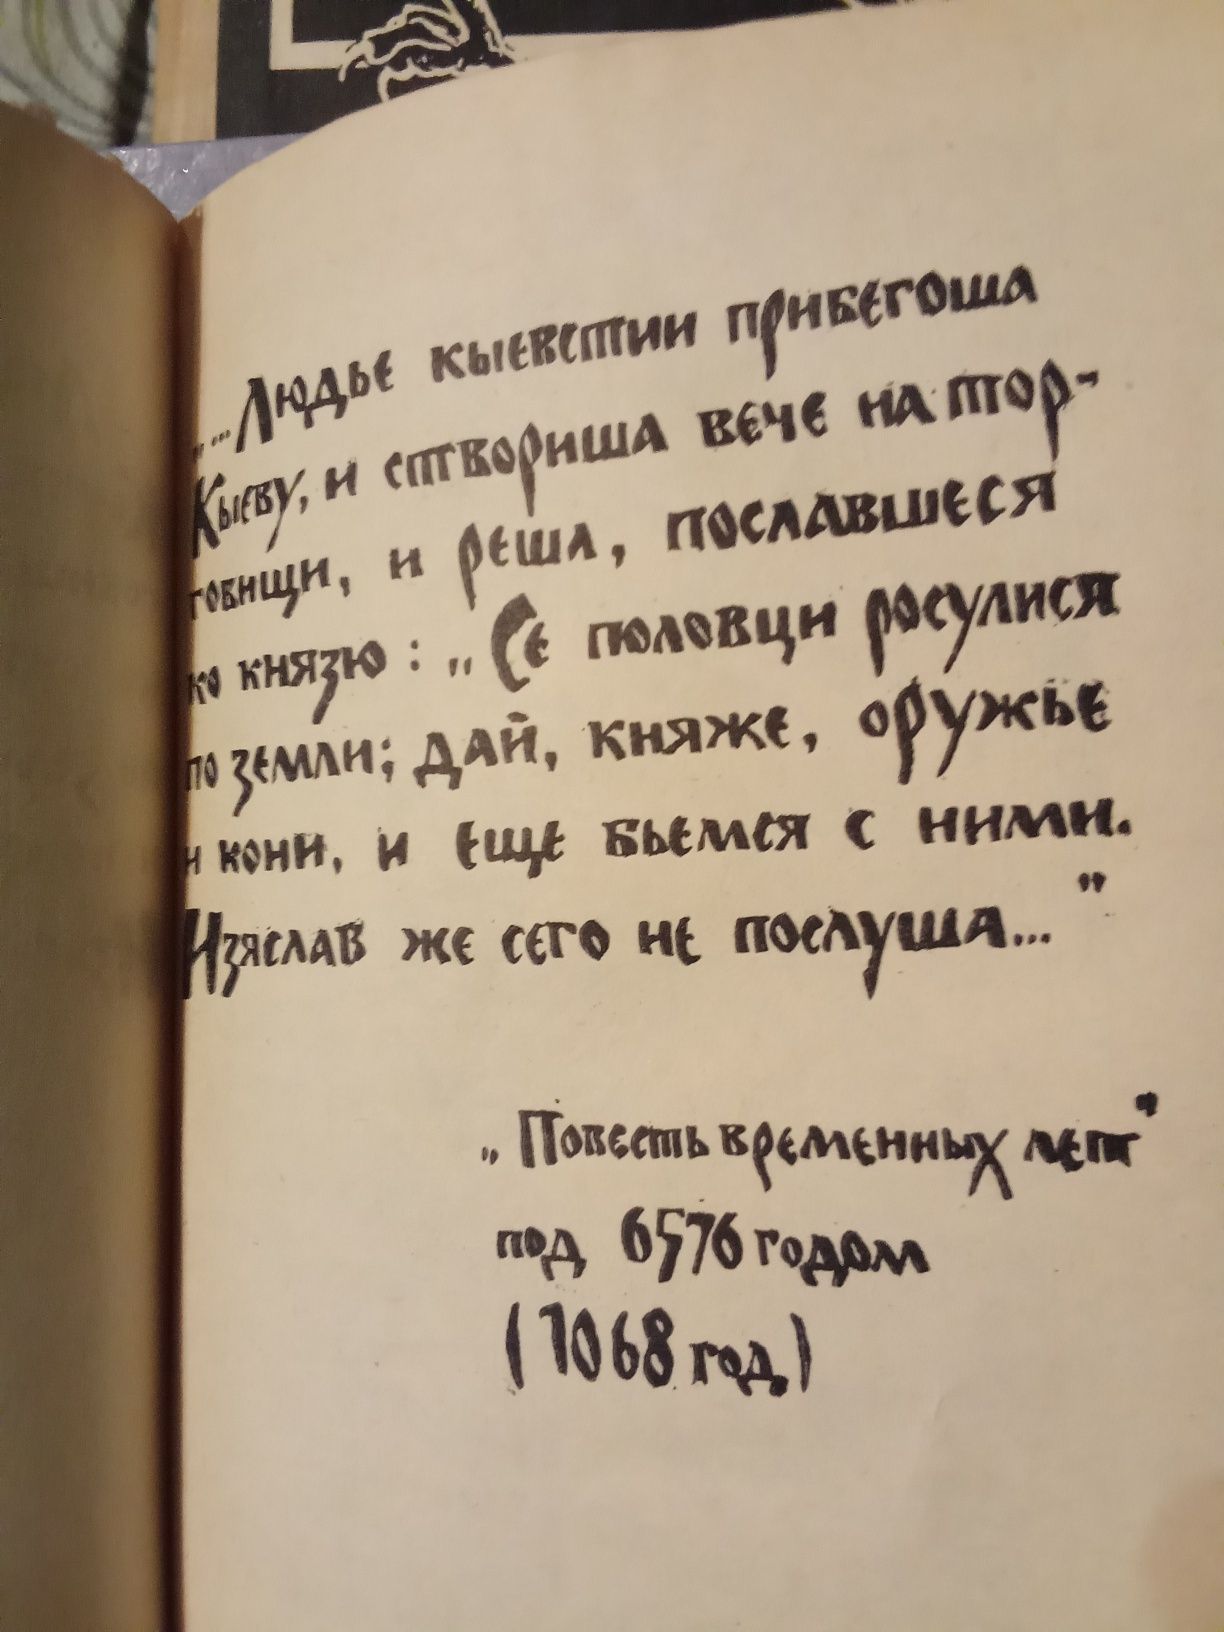 „...Людье кыевстии прибегоша
Кыеву, и створиша вече на тор-
говищи, и реша, пославшеся
ко князю: „Се половци росулися
по земли; дай, княже, оружье
и кони, и еще бьемся с ними.
Изяслав же сего не послуша..."
„Повесть временных лет"
под 6576 годом
(1068 год)